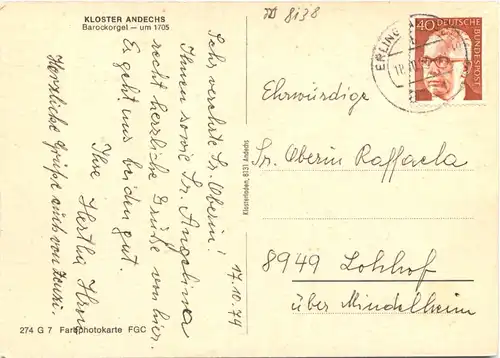 KLOSTER ANDECHS
Barockorgel — um 1705
8138
40 DEUTSCHE
BUNDESPOST
ERLING
17.10.79
Sehr verehrte Sr. Oberin!
Ihnen sowie Sr. Angelina
recht herzliche Grüße von hier.
Es geht uns beiden gut.
Ihre Hertha
Herzliche Grüße auch von Zenzi.
Klosterladen, 8131 Andechs
Ehrwürdige
Sr. Oberin Raffaela
8949 Lohhof
über Mindelheim
274 G 7 Farbphotokarte FGC